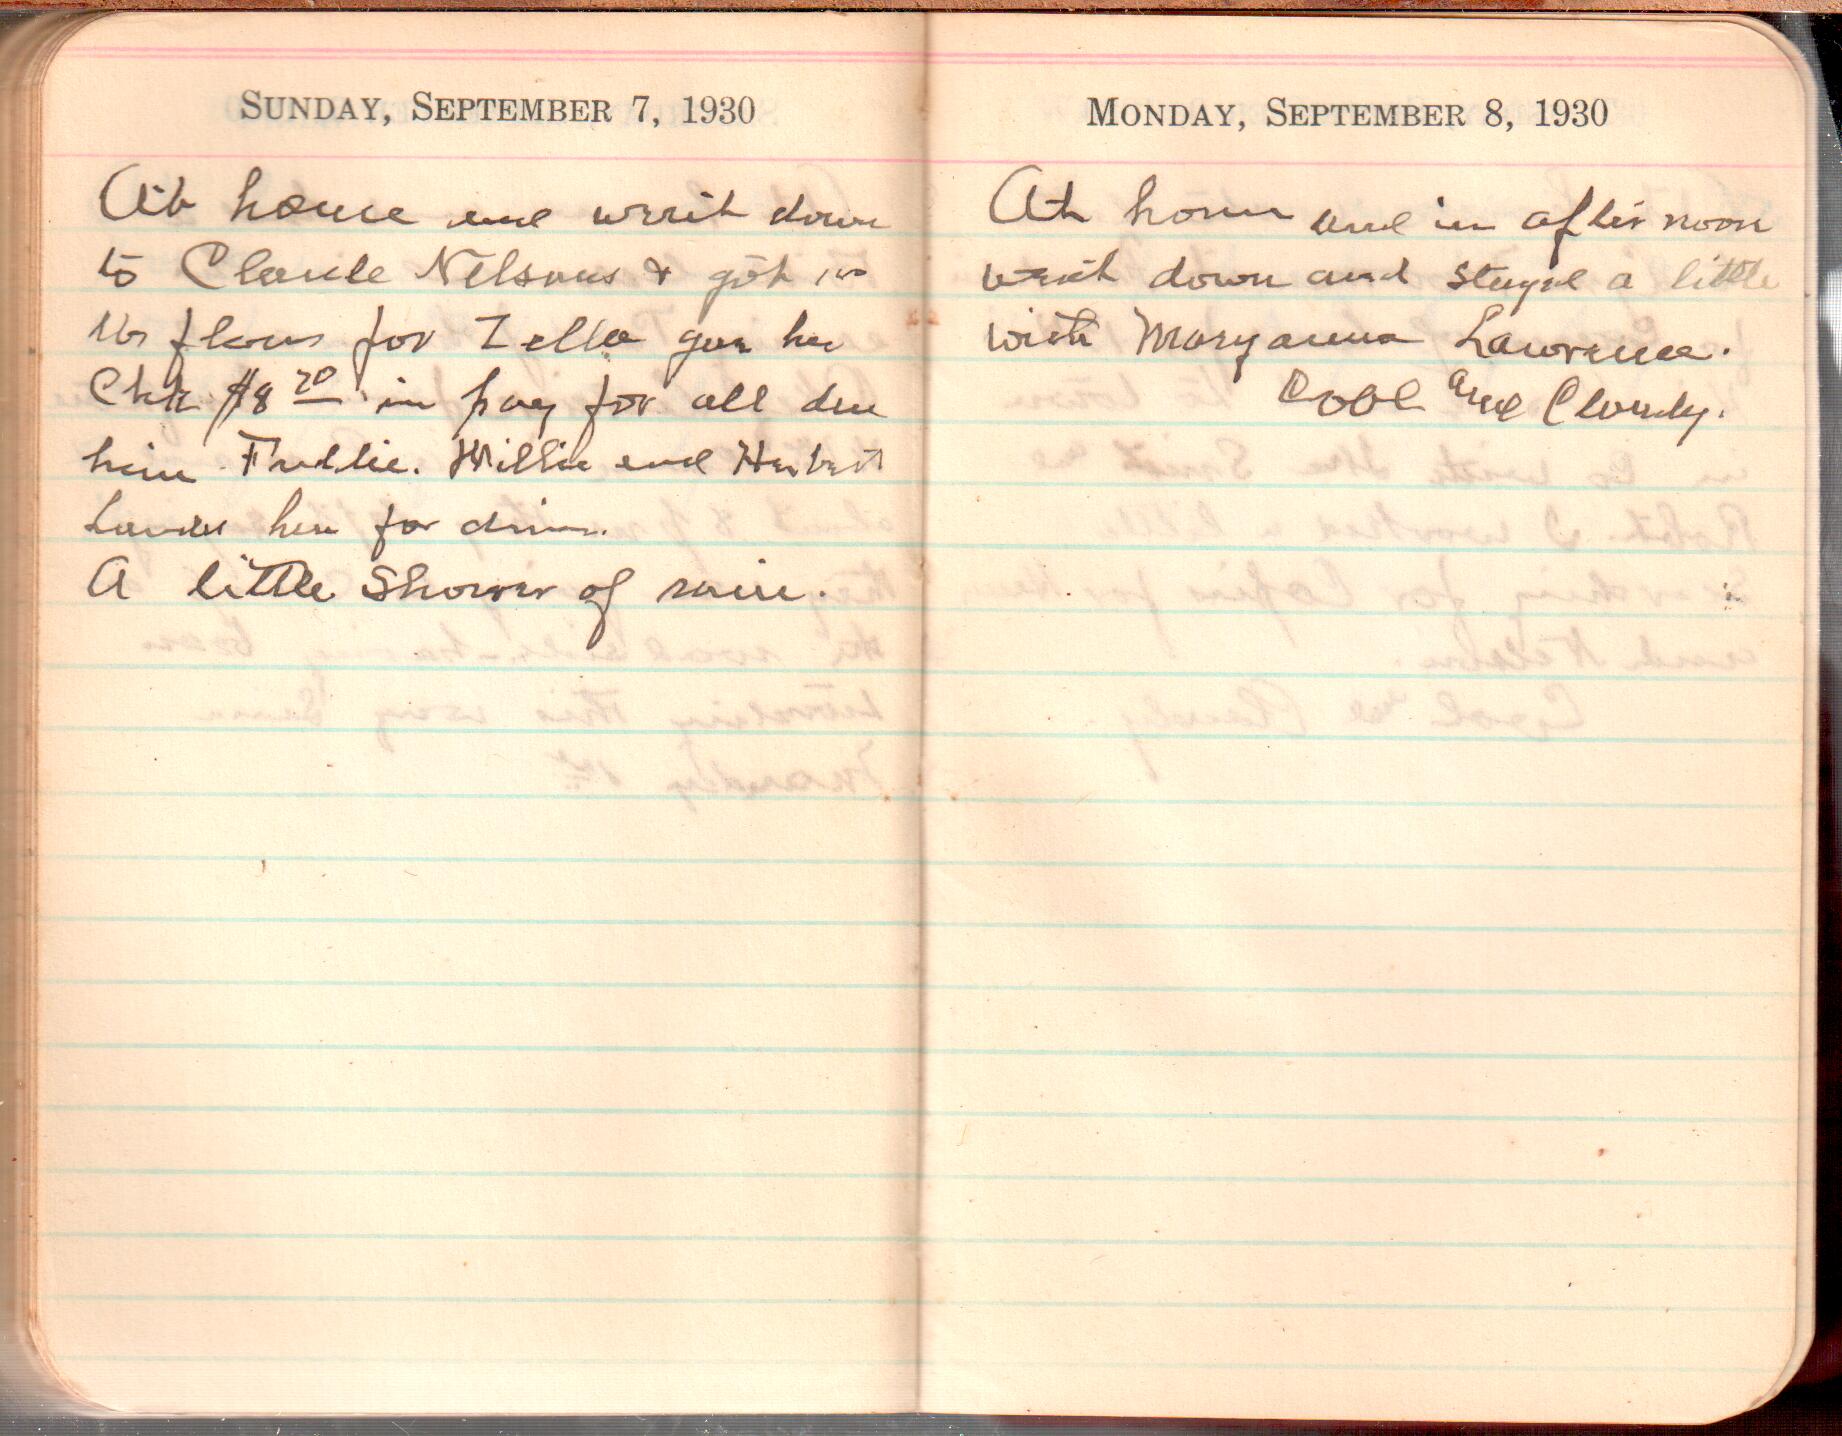 SUNDAY, SEPTEMBER 7, 1930
At house and went down
to Claude Nelsons & got
lbs flour for Zella gave her
Chk $8 20 in pay for all due
him Fudlie. Willie and Herbert
Landes here for dinner.
A little Shower of rain.
MONDAY, SEPTEMBER 8, 1930
At home and in afternoon
went down and stayed a little
with Maryanna Lawrence.
Cool and Cloudy.